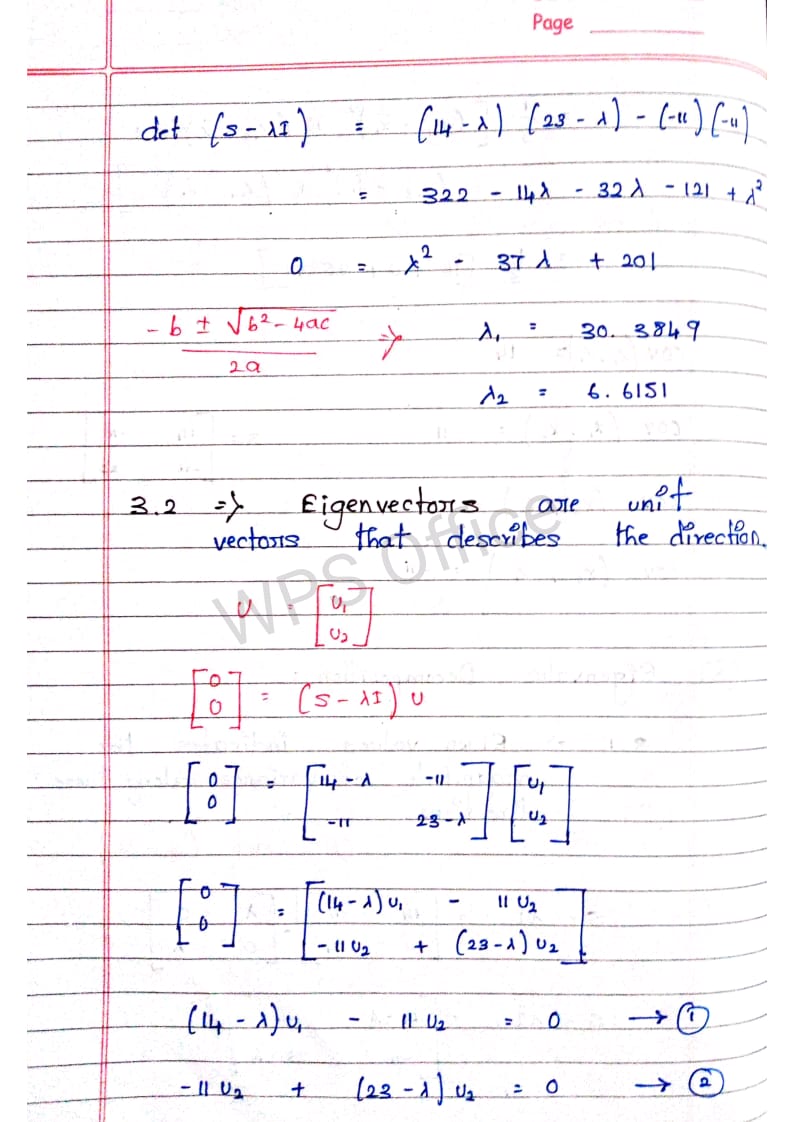 Page
det (S - λI) = (14 - λ) (23 - λ) - (-11) (-11)
= 322 - 14λ - 32λ - 121 + λ²
0 = λ² - 37λ + 201
-b ± √b² - 4ac / 2a => λ₁ = 30.3849
λ₂ = 6.6151
3.2 => Eigenvectors are unit
vectors that describes the direction.
U = [U₁ U₂]
[0 0] = (S - λI) U
[0 0] = [14 - λ -11 -11 23 - λ] [U₁ U₂]
[0 0] = [(14 - λ) U₁ - 11 U₂ -11 U₂ + (23 - λ) U₂]
(14 - λ) U₁ - 11 U₂ = 0 → ①
-11 U₂ + (23 - λ) U₂ = 0 → ②
WPS Office